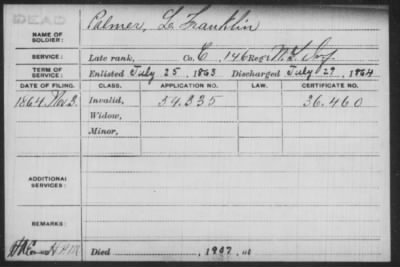 DEAD
NAME OF SOLDIER: Palmer, L. Franklin
SERVICE: Late rank, Co. C, 146 Reg't N.Y. Inf.
TERM OF SERVICE: Enlisted July 25, 1863 Discharged July 29, 1864
DATE OF FILING. CLASS. APPLICATION NO. LAW. CERTIFICATE NO.
1864, Nov 3. Invalid, 54.335 36.460
Widow,
Minor,
ADDITIONAL SERVICES:
REMARKS:
Died , 1907, at